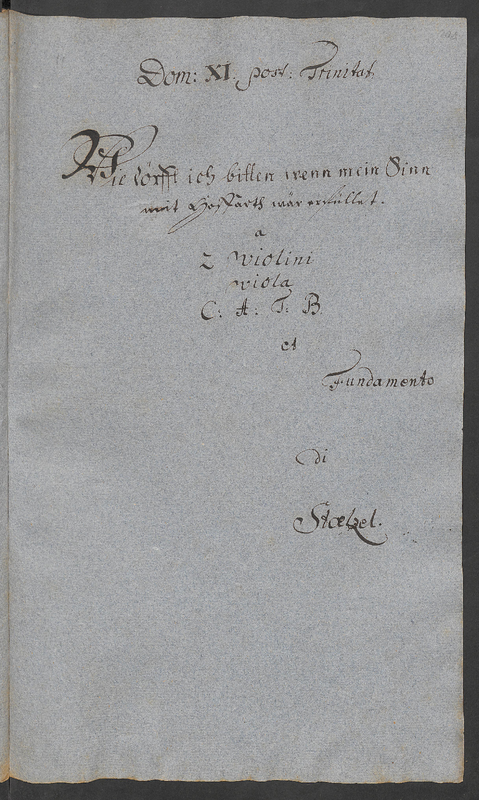 Dom: XI. post: Trinitat:
Wie dörfft ich bitten wenn mein Sinn
mit Hoffarth wär erfüllet.
a
2 Violini
Viola
C: A: T: B
et
Fundamento
di
Stœlzel.